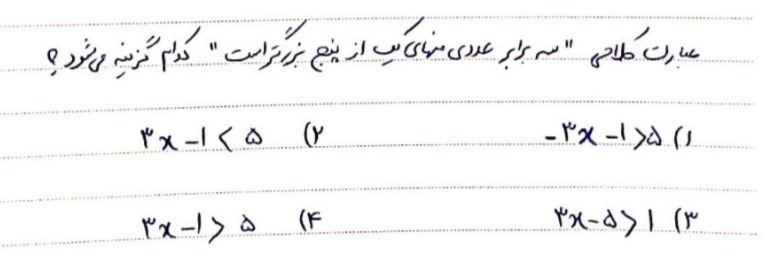 عبارت کلامی "سه برابر عددی منهای یک از پنج بزرگتر است" کدام گزینه می‌شود؟
۱) -۳x - ۱ > ۵ ۲) ۳x - ۱ < ۵
۳) ۳x - ۵ > ۱ ۴) ۳x - ۱ > ۵